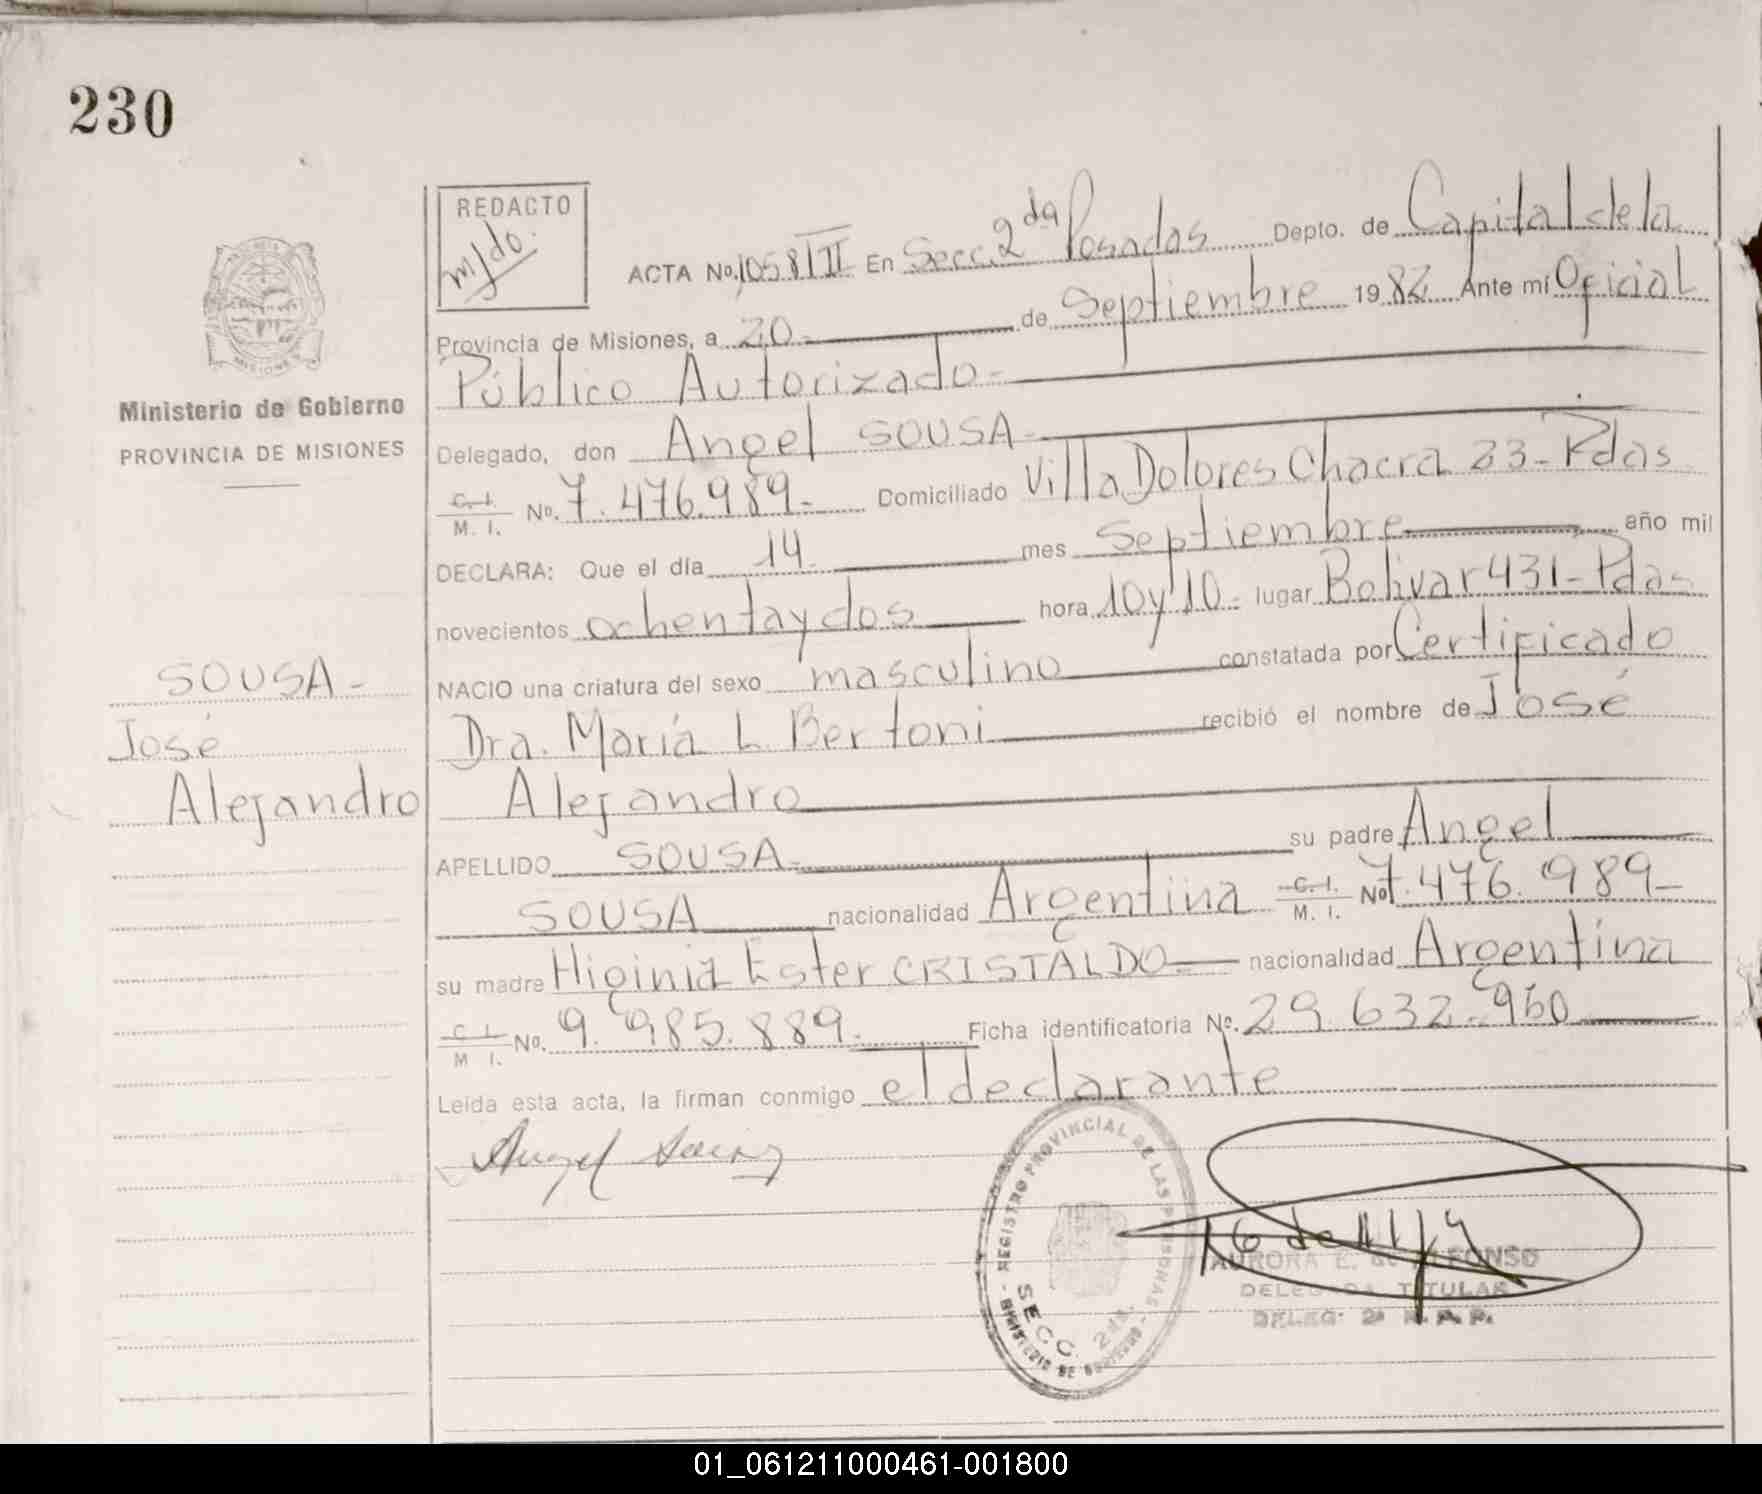 230
REDACTO
m/do.
ACTA No. 1058/II En Secc. 2da Posadas Depto. de Capital de la
Provincia de Misiones, a 20 de Septiembre 1982 Ante mí Oficial
Público Autorizado-
Ministerio de Gobierno
PROVINCIA DE MISIONES
Delegado, don Angel SOUSA-
C. I. M. I. No. 7.476.989- Domiciliado Villa Dolores Chacra 33- Pdas
DECLARA: Que el día 14 mes Septiembre año mil
novecientos ochentaydos hora 10y10- lugar Bolivar 431- Pdas-
NACIO una criatura del sexo masculino constatada por Certificado
Dra. María L. Bertoni recibió el nombre de José
Alejandro
SOUSA-
José
Alejandro
APELLIDO SOUSA- su padre Angel
SOUSA nacionalidad Argentina C. I. M. I. No 7.476.989-
su madre Higinia Ester CRISTALDO- nacionalidad Argentina
C. I. M. I. No. 9.985.889- Ficha identificatoria No. 29.632.960
Leída esta acta, la firman conmigo el declarante
Angel
REGISTRO PROVINCIAL DE LAS PERSONAS
SECC. 2da.
MINISTERIO DE GOBIERNO
AURORA E. de ALFONSO
DELEGADA TITULAR
DELEG. 2a R. P. P.
MISIONES
01_061211000461-001800